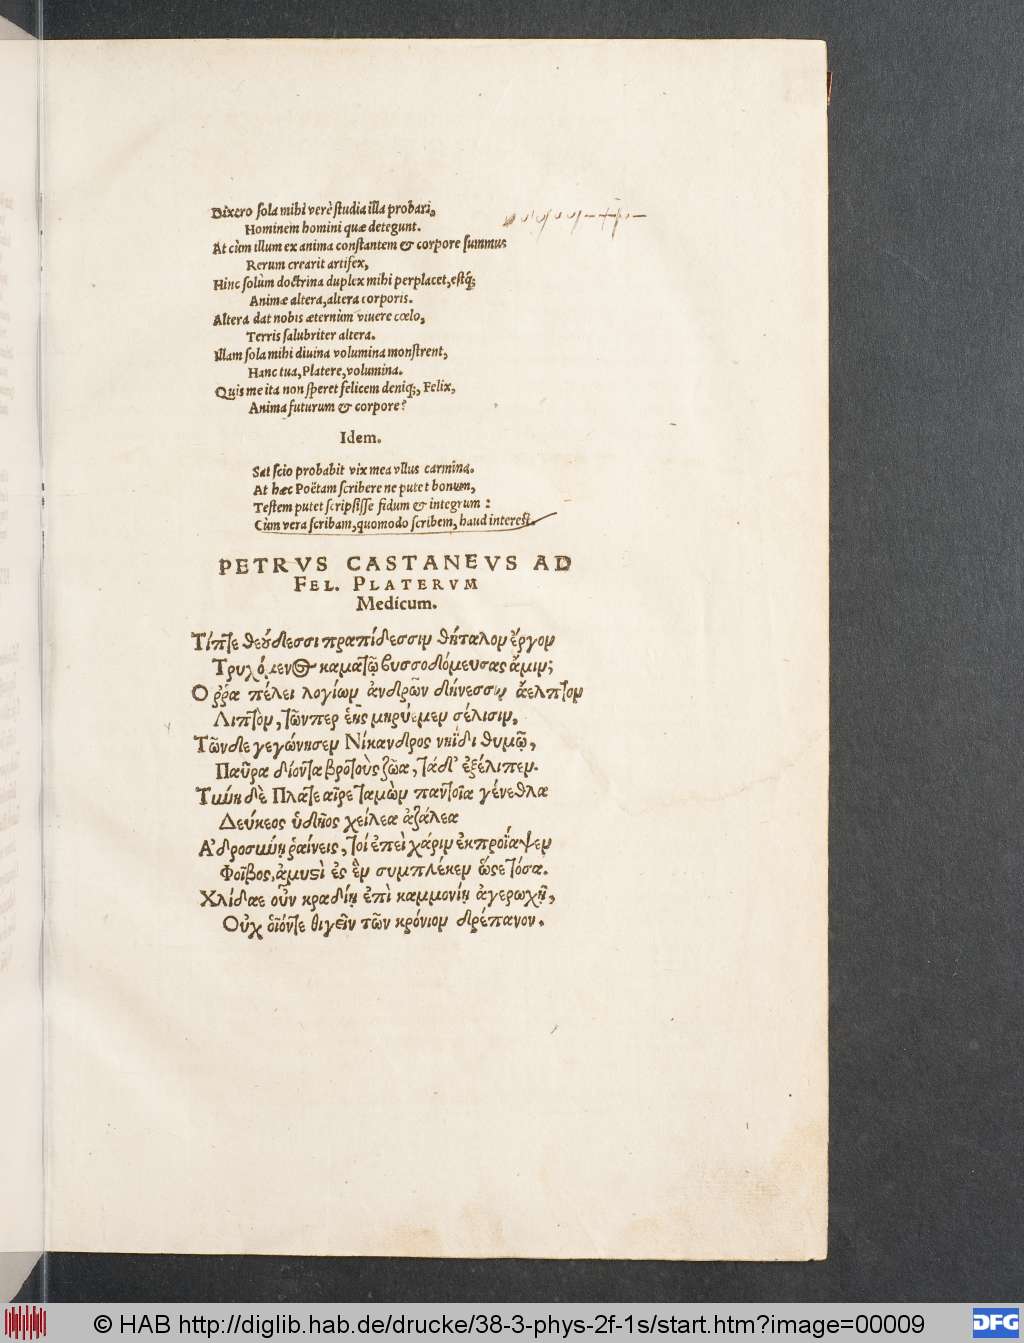 Dixero sola mihi verè studia illa probari,
Hominem homini quæ detegunt.
At cùm illum ex anima constantem & corpore summus
Rerum crearit artifex,
Hinc solùm doctrina duplex mihi perplacet, estq́;
Animæ altera, altera corporis.
Altera dat nobis æternùm viuere cœlo,
Terris salubriter altera.
Illam sola mihi diuina volumina monstrent,
Hanc tua, Platere, volumina.
Quis me ita non speret felicem deniq;, Felix,
Anima futurum & corpore?
Idem.
Sat scio probabit vix mea vllus carmina.
At hæc Poëtam scribere ne putet bonum,
Testem putet scripsisse fidum & integrum:
Cùm vera scribam, quomodo scribem, haud interest.
PETRVS CASTANEVS AD
FEL. PLATERVM
Medicum.
Τίπτε θεύδεσσι πραπίδεσσιν θήταλον ἔργον
Τρυχόμενος καμάτῳ βυσσοδόμευσας ἄμιν;
Ο ῤῥα πέλει λογίων ἀνδρῶν δήνεσσιν ἄελπτον
Λιπτὸν, τῶνπερ ἑῆς μηρύεμεν σέλισιν.
Τῶνδε γεγώνησεν Νίκανδρος νηΐδι θυμῷ,
Παῦρα δίοντα βροτοὺς ζῶα, τάδ' ἐξέλιπεν.
Τιὴν δὲ Πλάτε αἱρε ταμὼν παντοῖα γένεθλα
Δεύκεος ὑδῆος χείλεα ἀζάλεα
Α'δροσιὴν ῥαίνεις, τοί ἐπεὶ χάριν ἐκπροΐαψεν
Φοῖβος, ἀμυςὶ ἐς ἓν συμπλέκεν ὥςε τόσα.
Χλίδαε οὖν κραδίῃ ἐπὶ καμμονίῃ ἀγερωχῇ,
Οὐχ οἷόντε θιγεῖν τῶν κρόνιον δρέπανον.
© HAB http://diglib.hab.de/drucke/38-3-phys-2f-1s/start.htm?image=00009
DFG